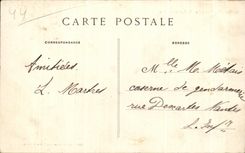 44
CARTE POSTALE
CORRESPONDANCE
ADRESSE
Amitiées
L. Marhes
Mlle M. Métais
caserne de gendarmerie
rue Desmarles Nantes
L. Infre